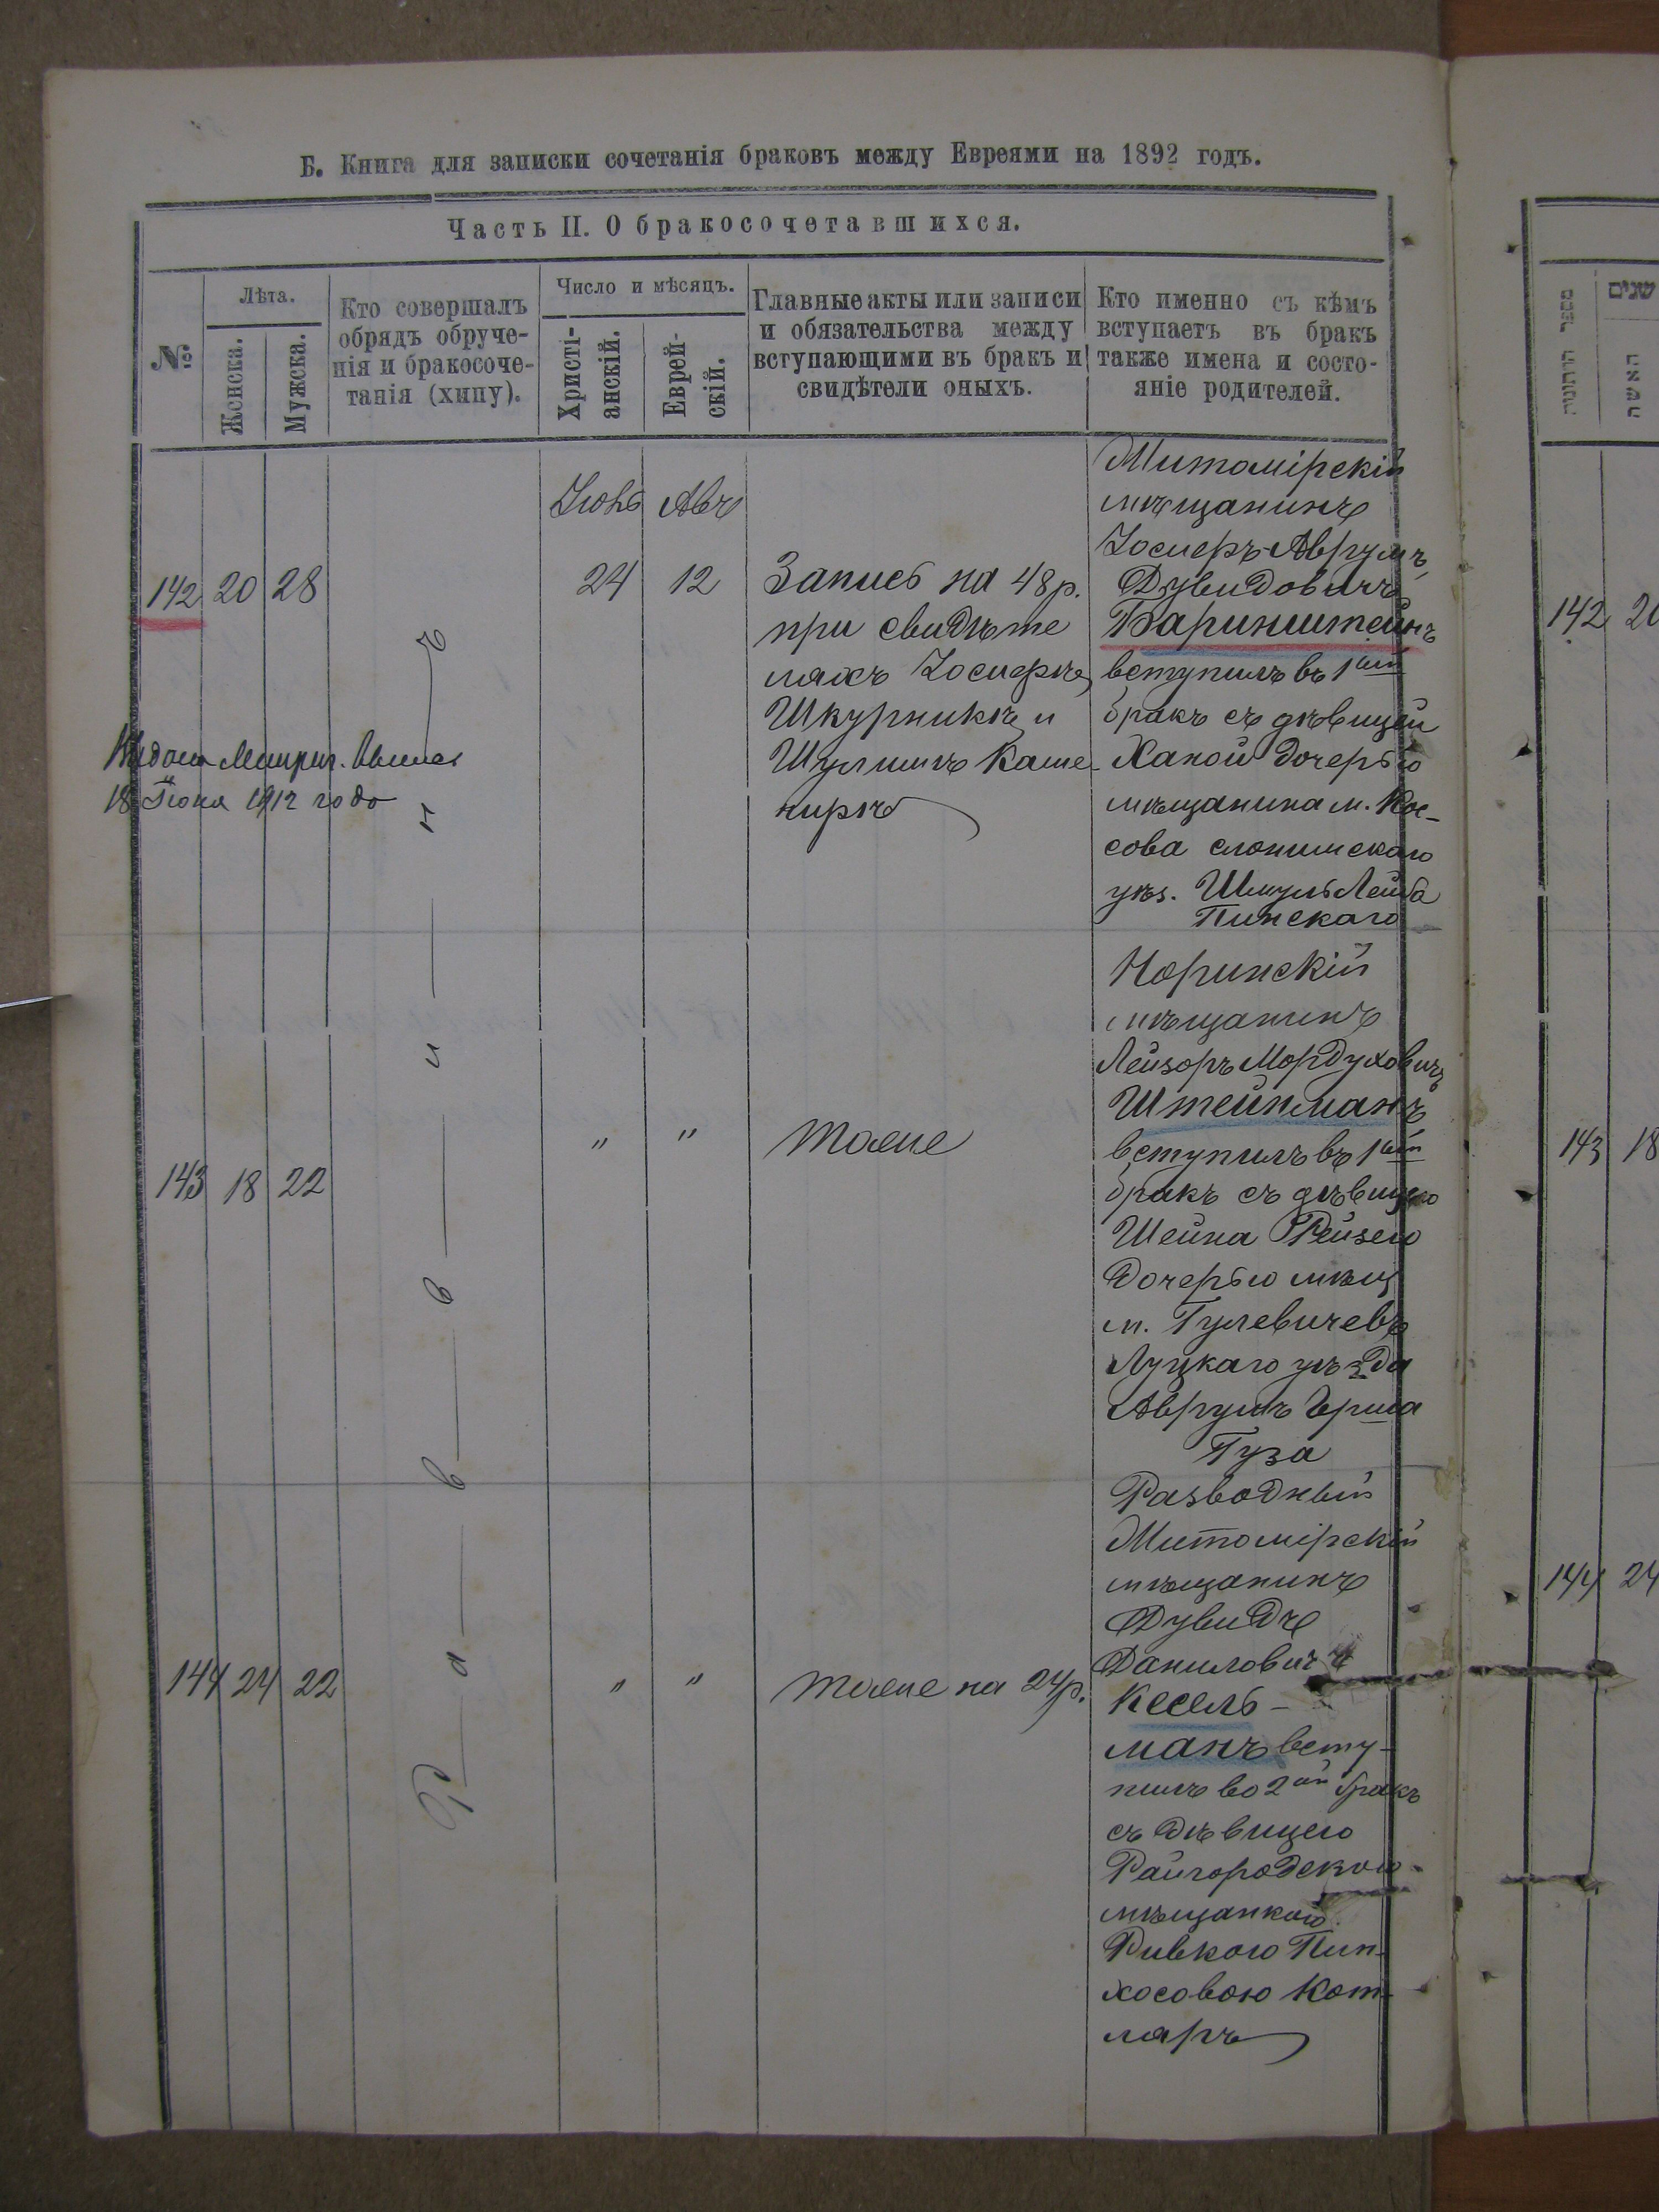 Б. Книга для записки сочетанія браковъ между Евреями на 1892 годъ.
Часть II. О бракосочетавшихся.
№
Лѣта.
Женска.
Мужска.
Кто совершалъ
обрядъ обруче-
нія и бракосоче-
танія (хипу).
Число и мѣсяцъ.
Христі-
анскій.
Еврей-
скій.
Главные акты или записи
и обязательства между
вступающими въ бракъ и
свидѣтели оныхъ.
Кто именно съ кѣмъ
вступаетъ въ бракъ
также имена и состо-
яніе родителей.
142 20 28
Раввинъ
Авъ
24 12
Запись на 48 р.
при свидѣте
ляхъ Іосиеръ
Шкурникъ и
Шулимъ Каше-
ниръ
Житомірскій
мѣщанинъ
Іосиеръ Аврумъ
Дувидовичъ
Баринштейнъ
вступилъ въ 1ый
бракъ съ дѣвицей
Ханой дочерью
мѣщанина м. Кос-
сова слонимскаго
уѣз. Шмуль Лейба
Пинскаго
18 Іюня 1912 года
143 18 22
" "
тоже
Норинскій
мѣщанинъ
Лейзоръ Мордуховичъ
Штейнманъ
вступилъ въ 1ый
бракъ съ дѣвицею
Шейна Рейзею
дочерью мѣщ
м. Гулевичевъ
Луцкаго уѣзда
Аврумъ Герша
Гуза
144 24 22
" "
тоже на 24 р.
Разводный
Житомірскій
мѣщанинъ
Дувидъ
Даниловичъ
Кесель-
манъ всту-
пилъ во 2ой бракъ
съ дѣвицею
Райгородскою
мѣщанкою
Ривкою Пин-
хосовою Кот-
ляръ
מספר החתונות
שנים
האשה
142 20
143 18
144 24